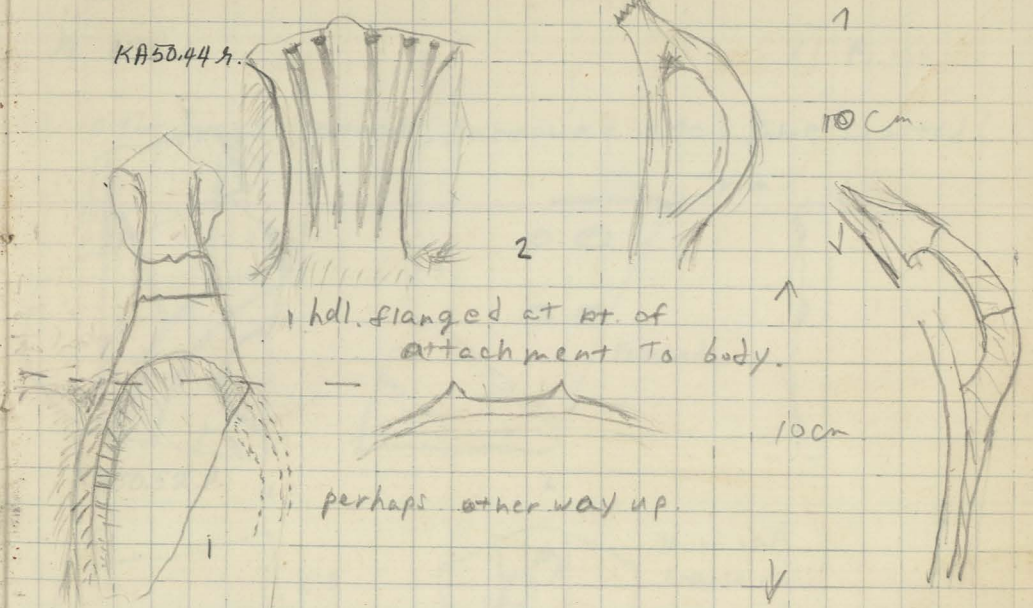 KA50.44r.
10 cm
2
1 hdl. flanged at pt. of
attachment to body.
10cm
perhaps other way up.
1